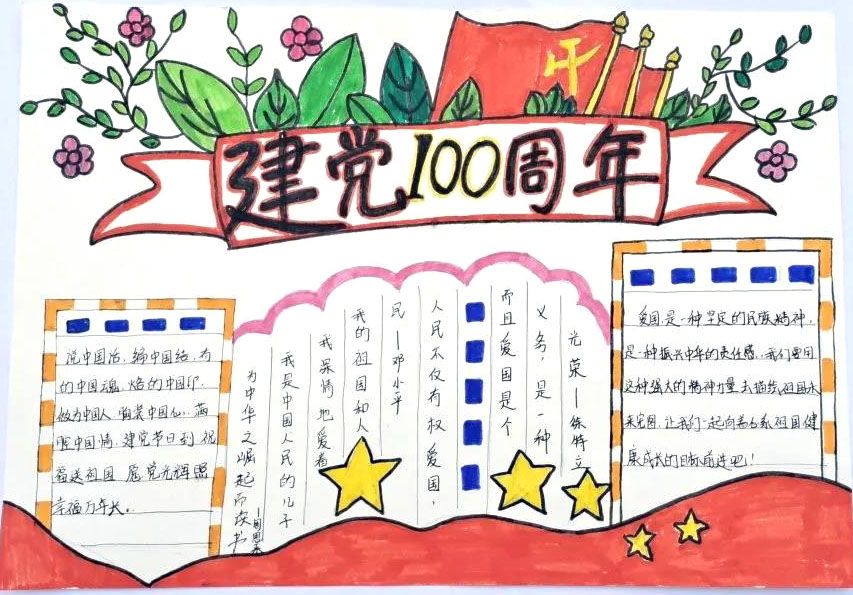 建党100周年
说中国话,编中国结,为
的中国魂,烙的中国印,
做为中国人,胸装中国心,满
腔中国情,建党节日到,祝
福送祖国,愿党光辉照
幸福万年长。
为中华之崛起而读书
—周恩来
我是中国人民的儿子
我深情地爱着
我的祖国和人
民—邓小平
人民不仅有权爱国,
而且爱国是个
义务,是一种
光荣—徐特立
爱国,是一种坚定的民族精神,
是一种振兴中华的责任感,我们要用
这种强大的精神力量去描绘祖国
宏图,让我们一起向着祖国健
康成长的目标前进吧!